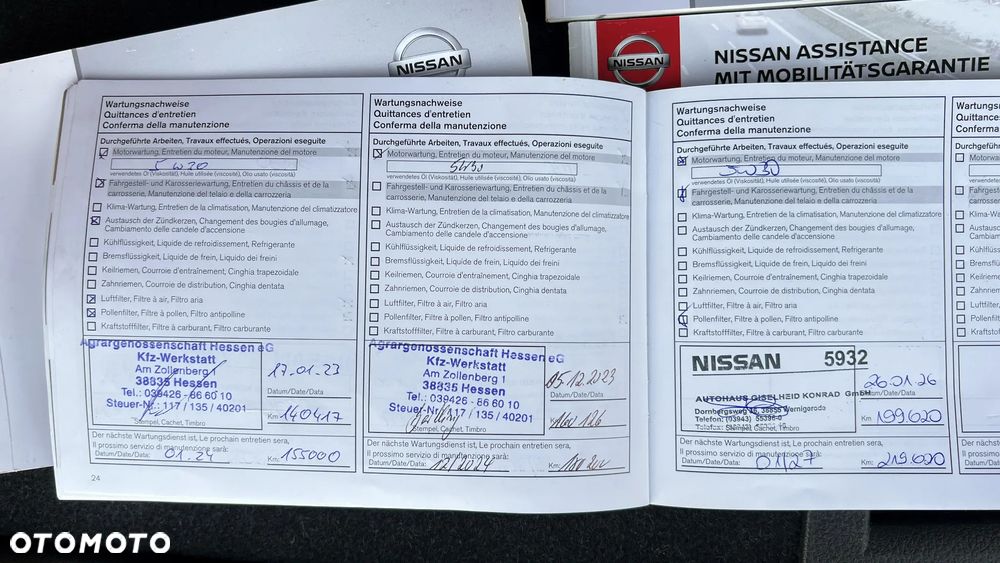 NISSAN
NISSAN
NISSAN ASSISTANCE
MIT MOBILITÄTSGARANTIE
Wartungsnachweise
Quittances d'entretien
Conferma della manutenzione
Durchgeführte Arbeiten, Travaux effectués, Operazioni eseguite
Motorwartung, Entretien du moteur, Manutenzione del motore
5W30
verwendetes Öl (Viskosität), Huile utilisée (viscosité), Olio usato (viscosità)
Fahrgestell- und Karosseriewartung, Entretien du châssis et de la
carrosserie, Manutenzione del telaio e della carrozzeria
Klima-Wartung, Entretien de la climatisation, Manutenzione del climatizzatore
Austausch der Zündkerzen, Changement des bougies d'allumage,
Cambiamento delle candele d'accensione
Kühlflüssigkeit, Liquide de refroidissement, Refrigerante
Bremsflüssigkeit, Liquide de frein, Liquido dei freini
Keilriemen, Courroie d'entraînement, Cinghia trapezoidale
Zahnriemen, Courroie de distribution, Cinghia dentata
Luftfilter, Filtre à air, Filtro aria
Pollenfilter, Filtre à pollen, Filtro antipolline
Kraftstofffilter, Filtre à carburant, Filtro carburante
Agrargenossenschaft Hessen eG
Kfz-Werkstatt
Am Zollenberg 1
38835 Hessen
Tel.: 039426 - 86 60 10
Steuer-Nr.: 117 / 135 / 40201
Stempel, Cachet, Timbro
17.01.23
Datum/Date/Data:
Km: 140417
Der nächste Wartungsdienst ist, Le prochain entretien sera,
Il prossimo servizio di manutenzione sarà:
Datum/Date/Data: 01.24
Km: 155000
24
Wartungsnachweise
Quittances d'entretien
Conferma della manutenzione
Durchgeführte Arbeiten, Travaux effectués, Operazioni eseguite
Motorwartung, Entretien du moteur, Manutenzione del motore
5W30
verwendetes Öl (Viskosität), Huile utilisée (viscosité), Olio usato (viscosità)
Fahrgestell- und Karosseriewartung, Entretien du châssis et de la
carrosserie, Manutenzione del telaio e della carrozzeria
Klima-Wartung, Entretien de la climatisation, Manutenzione del climatizzatore
Austausch der Zündkerzen, Changement des bougies d'allumage,
Cambiamento delle candele d'accensione
Kühlflüssigkeit, Liquide de refroidissement, Refrigerante
Bremsflüssigkeit, Liquide de frein, Liquido dei freini
Keilriemen, Courroie d'entraînement, Cinghia trapezoidale
Zahnriemen, Courroie de distribution, Cinghia dentata
Luftfilter, Filtre à air, Filtro aria
Pollenfilter, Filtre à pollen, Filtro antipolline
Kraftstofffilter, Filtre à carburant, Filtro carburante
Agrargenossenschaft Hessen eG
Kfz-Werkstatt
Am Zollenberg 1
38835 Hessen
Tel.: 039426 - 86 60 10
Steuer-Nr.: 117 / 135 / 40201
Stempel, Cachet, Timbro
05.12.2023
Datum/Date/Data:
Km: 160 126
Der nächste Wartungsdienst ist, Le prochain entretien sera,
Il prossimo servizio di manutenzione sarà:
Datum/Date/Data: 12/2024
Km: 180 200
Wartungsnachweise
Quittances d'entretien
Conferma della manutenzione
Durchgeführte Arbeiten, Travaux effectués, Operazioni eseguite
Motorwartung, Entretien du moteur, Manutenzione del motore
5W30
verwendetes Öl (Viskosität), Huile utilisée (viscosité), Olio usato (viscosità)
Fahrgestell- und Karosseriewartung, Entretien du châssis et de la
carrosserie, Manutenzione del telaio e della carrozzeria
Klima-Wartung, Entretien de la climatisation, Manutenzione del climatizzatore
Austausch der Zündkerzen, Changement des bougies d'allumage,
Cambiamento delle candele d'accensione
Kühlflüssigkeit, Liquide de refroidissement, Refrigerante
Bremsflüssigkeit, Liquide de frein, Liquido dei freini
Keilriemen, Courroie d'entraînement, Cinghia trapezoidale
Zahnriemen, Courroie de distribution, Cinghia dentata
Luftfilter, Filtre à air, Filtro aria
Pollenfilter, Filtre à pollen, Filtro antipolline
Kraftstofffilter, Filtre à carburant, Filtro carburante
NISSAN 5932
AUTOHAUS GISELHEID KONRAD GmbH
Dornbergsweg 38855 Wernigerode
Telefon: (03943) 55396-0
Stempel, Cachet, Timbro
26.01.26
Datum/Date/Data:
Km: 199620
Der nächste Wartungsdienst ist, Le prochain entretien sera,
Il prossimo servizio di manutenzione sarà:
Datum/Date/Data: 01/27
Km: 219.620
OTOMOTO